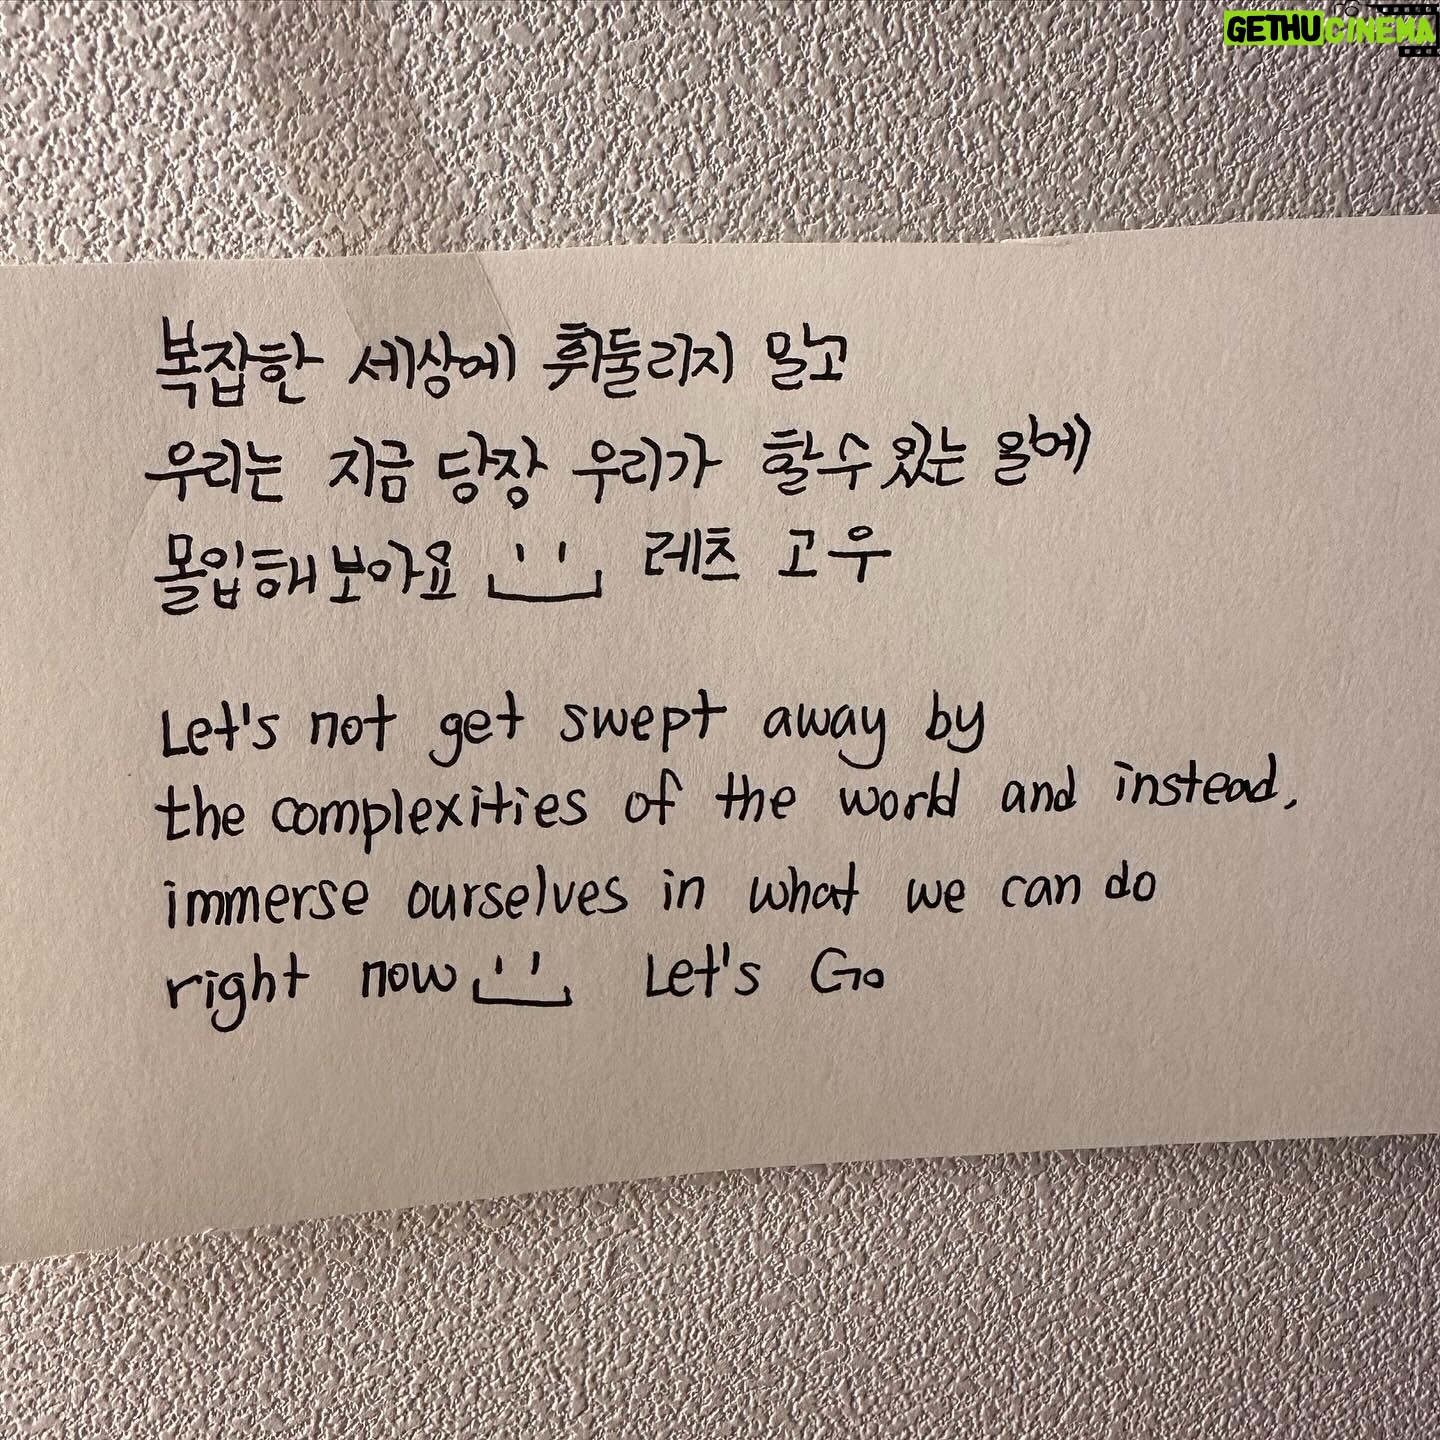 GETHUCINEMA
복잡한 세상에 휘둘리지 말고
우리는 지금 당장 우리가 할수있는 일에
몰입해보아요 레츠 고우
Let's not get swept away by
the complexities of the world and instead,
immerse ourselves in what we can do
right now Let's Go